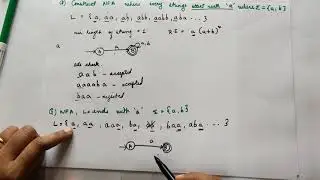 a) Construct NFA where every strings start with 'a' where Σ = {a, b}
L = { a, aa, ab, abb, aabb, aba ... }
min length of string = 1 R.E = a(a+b)*
a
A a B a,b
aab - accepted
aaaba - accepted
baa - rejected
NFA, L = ends with 'a' Σ = {a, b}
L = { a, aa, aaa, ba, baa, aba ... }
A a B